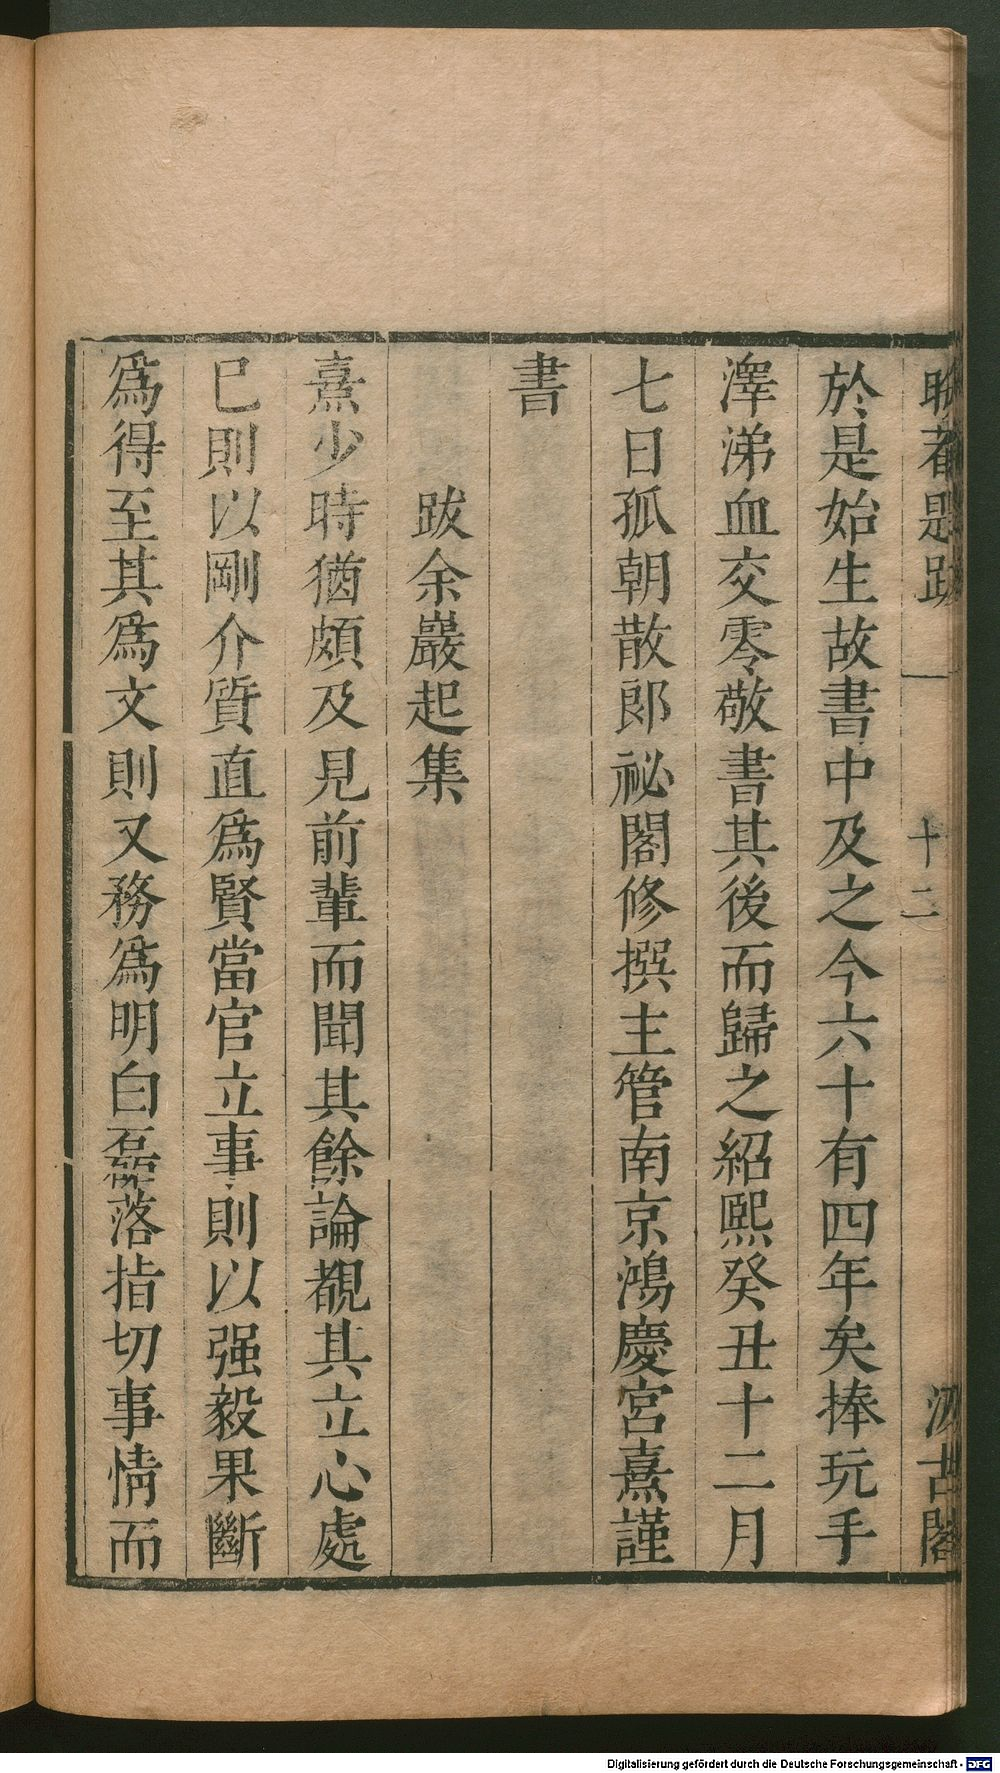 晦菴題跋 一 十二 汲古閣
於是始生故書中及之今六十有四年矣捧玩手
澤涕血交零敬書其後而歸之紹熙癸丑十二月
七日孤朝散郎祕閣修撰主管南京鴻慶宮熹謹
書
跋余巖起集
熹少時猶頗及見前輩而聞其餘論覩其立心處
已則以剛介質直爲賢當官立事則以强毅果斷
爲得至其爲文則又務爲明白磊落指切事情而
Digitalisierung gefördert durch die Deutsche Forschungsgemeinschaft - DFG